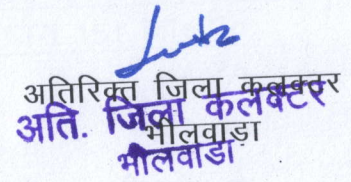 अतिरिक्त जिला कलक्टर
अति. जिला कलक्टर
भीलवाड़ा
भीलवाडा